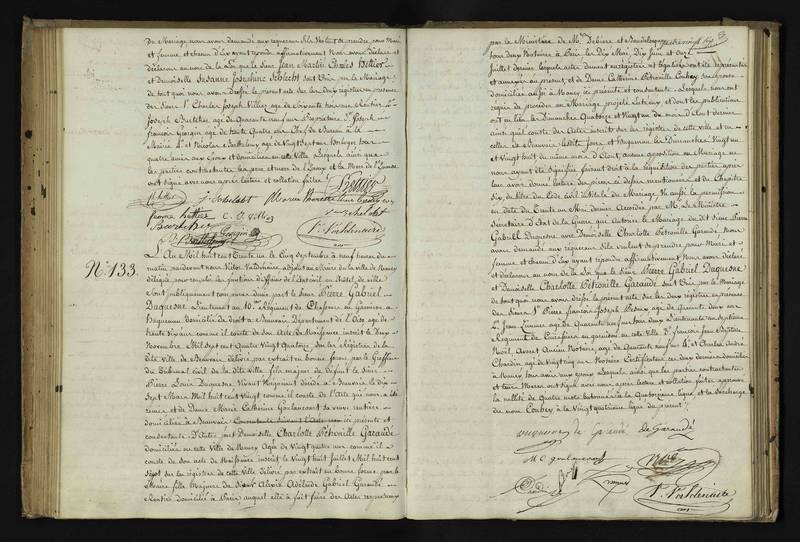 du Mariage, nous avons demandé aux requérans s'ils veulent se prendre pour Mari
et femme et chacun d'Eux ayant répondu affirmativement Nous avons déclaré et
déclarons au nom de la Loi que le Sieur Jean Martin Charles Hettier
et Demoiselle Suzanne Joséphine Schlecht sont Unis par le Mariage
de tout quoi nous avons dressé le présent acte sur les deux registres en présence
des Sieurs 1° Charles Joseph Villiez agé de Soixante trois ans Rentier 2°
Joseph agé de Quarante neuf ans Propriétaire 3° Joseph
françois Georgin agé de trente Quatre ans Chef de Bureau à la
Mairie 4° et Nicolas Berthelemy agé de Vingt Sept ans Horloger tous
quatre amis aux Epoux et domiciliés en cette Ville Lesquels ainsi que
les parties contractantes les père et mère de l'Epoux et la Mère de l'Epouse
ont signé avec nous après lecture et collation faites
Hettier
J. Schlecht
C. J. Villiez
Georgin
V. Valdenaire
N° 133.
L'An Mil huit cent Trente un le Cinq Septembre à neuf heures du
matin pardevant nous Victor Valdenaire adjoint au Maire de la ville de Nancy
délégué pour remplir les fonctions d'officier de l'état civil en l'hôtel de ville
Sont publiquement comparus d'une part le Sieur Pierre Gabriel
Duquesne Lieutenant au 10e Régiment de Chasseurs en Garnison à
Haguenau domicilié de droit à Beauvais Département de l'Oise agé de
trente Six ans comme il conste de son Acte de Naissance inscrit le Deux
Novembre Mil Sept cent Quatre Vingt Quatorze sur les Registres de la
dite ville de Beauvais délivré par extrait en bonne forme par le Greffier
du Tribunal Civil de la dite Ville fils majeur de défunt le Sieur
Pierre Louis Duquesne Vivant décédé à Beauvais le dix
Sept Mars Mil huit cent Vingt comme il conste de l'Acte qui nous a été
remis et de Dame Marie Catherine Goulancourt sa veuve rentière
domiciliée à Beauvais ici présente et
consentante. D'autre part Demoiselle Charlotte Pétronille Garaudé
domiciliée en cette Ville de Nancy Agée de Vingt quatre ans comme il
conste de son acte de Naissance inscrit le Vingt huit Juillet Mil huit cent
Sept sur les registres de cette Ville délivré par extrait en bonne forme par le
Maire fille Majeure du Sieur Alexis Adélaïde Gabriel Garaudé
Rentier domicilié à Paris auquel elle a fait faire des Actes respectueux
par le Ministère de Me
tous deux Notaires à Paris les Dix Mai, Dix Juin et Onze
Juillet derniers lesquels actes dument enregistrés et légalisés ont été représentés
et annexés au présent, et de Dame Catherine Pétronille Couhey son épouse
domiciliée aussi à Nancy ici présente et consentante. Lesquels nous ont
requis de procéder au Mariage projeté entr'eux et dont les publications
ont eu lieu les Dimanches Quatorze et Vingt un du mois d'Aout dernier
ainsi qu'il conste des Actes inscrits sur les registres de cette Ville et sur
celles de Beauvais lesdits jours et Haguenau les Dimanches Vingt un
et Vingt huit du même mois d'Aout, aucune opposition au Mariage ne
nous ayant été signifiée faisant droit à la réquisition des parties après
leur avoir donné lecture des pièces ci dessus mentionnées et du Chapitre
Six, du titre du Code civil intitulé du Mariage Vu aussi la permission
en date du Trente un Mai dernier Accordée par Mr. le Ministre
Secrétaire d'Etat de la Guerre qui Autorise le Mariage du dit Sieur Pierre
Gabriel Duquesne avec Demoiselle Charlotte Pétronille Garaudé Nous
avons demandé aux requérans s'ils veulent se prendre pour Mari et
femme et chacun d'Eux ayant répondu affirmativement Nous avons déclaré
et déclarons au nom de la Loi que le Sieur Pierre Gabriel Duquesne
et Demoiselle Charlotte Pétronille Garaudé sont Unis par le Mariage
de tout quoi nous avons dressé le présent acte sur les deux registres en présence
des Sieurs 1° Pierre françois Joseph agé de Quarante deux ans
2° Jean agé de Quarante neuf ans tous deux Lieutenans au septième
Régiment de Cuirassiers en garnison en cette Ville 3° françois Jean Baptiste
Noël, Avocat Ancien Notaire, agé de Quarante neuf ans 4° et Charles André
Chardin agé de Vingt cinq ans Notaire Certificateur ces deux derniers domiciliés
à Nancy, tous amis aux époux Lesquels ainsi que les parties contractantes
et leurs Mères ont signé avec nous après lecture et collation faites approuvé
la nullité de Quatre mots batonnés à la Quatorzième ligne, et la surcharge
du mot Couhey à la Vingt quatrième ligne du présent
duquesne
de Garaudé
de Garaudé
M C goulancourt
Noël
V. Valdenaire